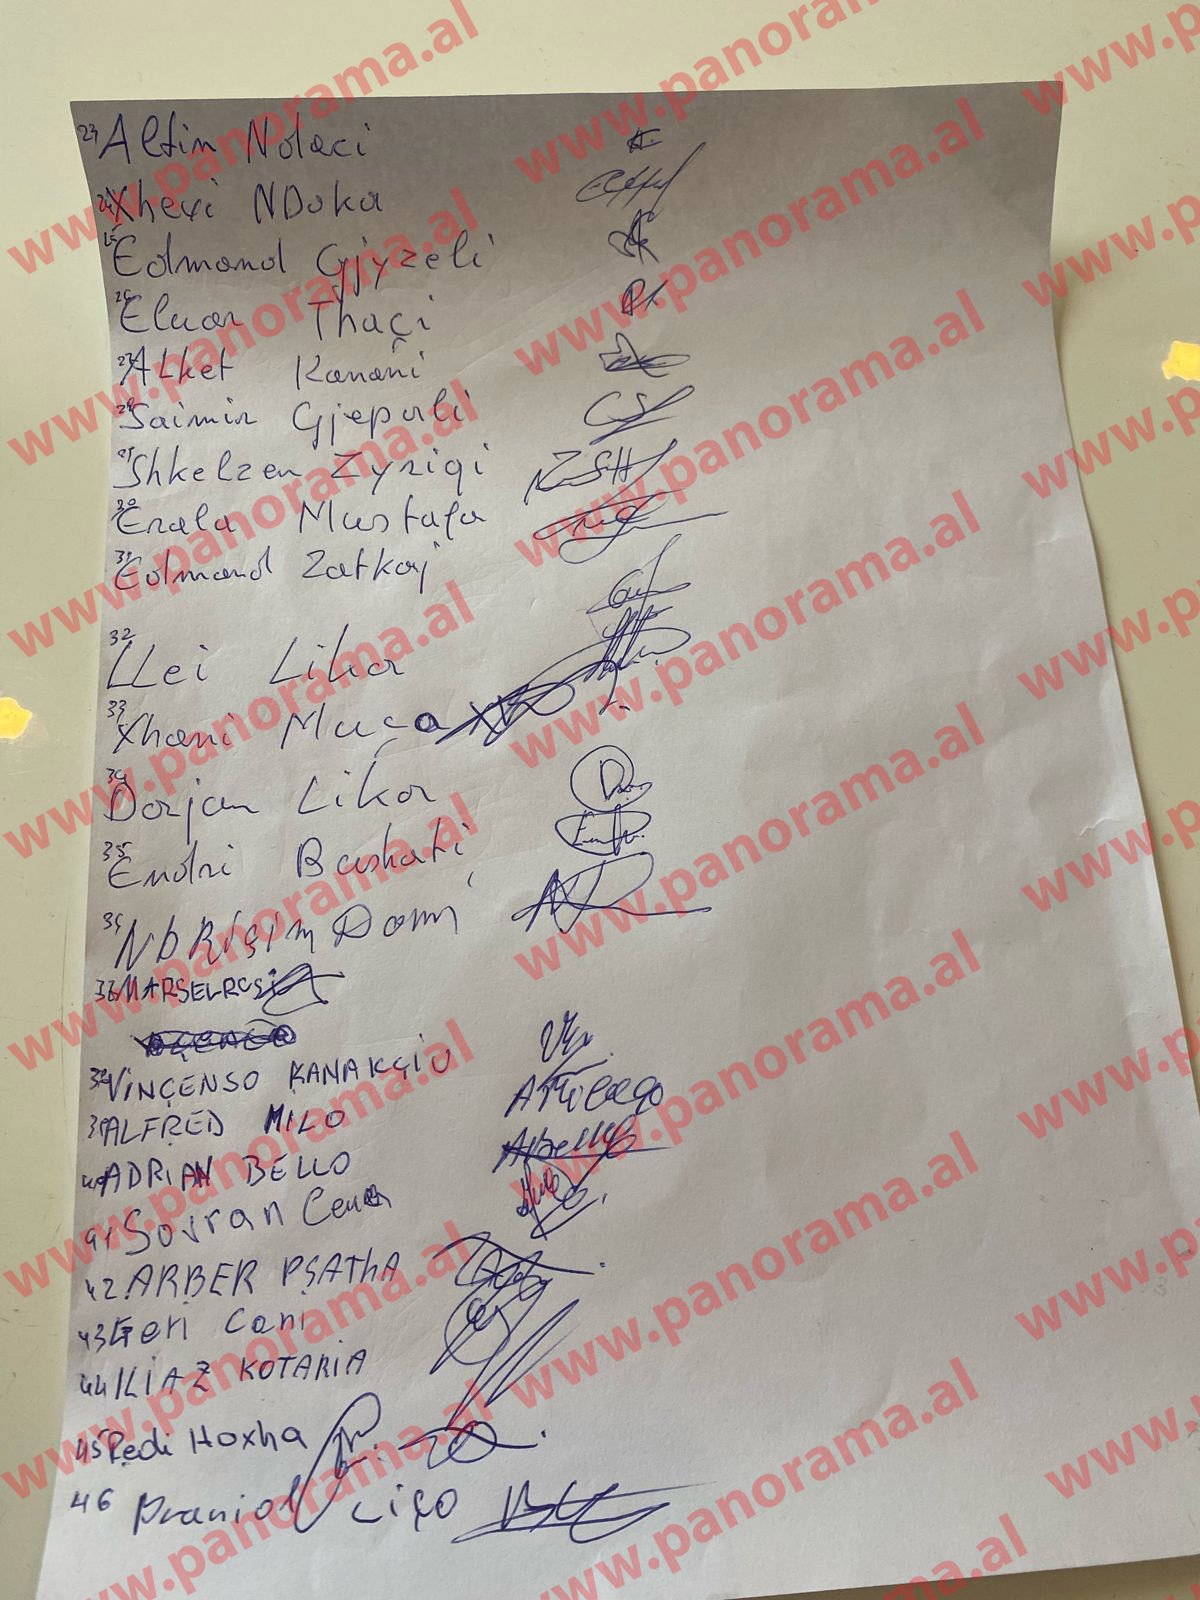 23 Altin Nolaci
24 Xhexi NDoka
25 Edmond Gjyzeli
26 Elvar Thaçi
27 Alket Kanani
28 Saimir Gjepali
29 Shkelzen Zyriqi
30 Erala Mustafa
31 Edmond Zatkaj
32 LLei Lika
33 Xhani Muça
34 Dorjan Lika
35 Endri Bushati
36 NDRIÇIM Domi
37 MARSEL
38 VINÇENSO KANAKÇIU
39 ALFRED MILO
40 ADRIAN BELLO
41 Sovran Cena
42 ARBER PSATHA
43 Geri Cani
44 ILIAZ KOTARIA
45 Redi Hoxha
46 Liço
www.panorama.al